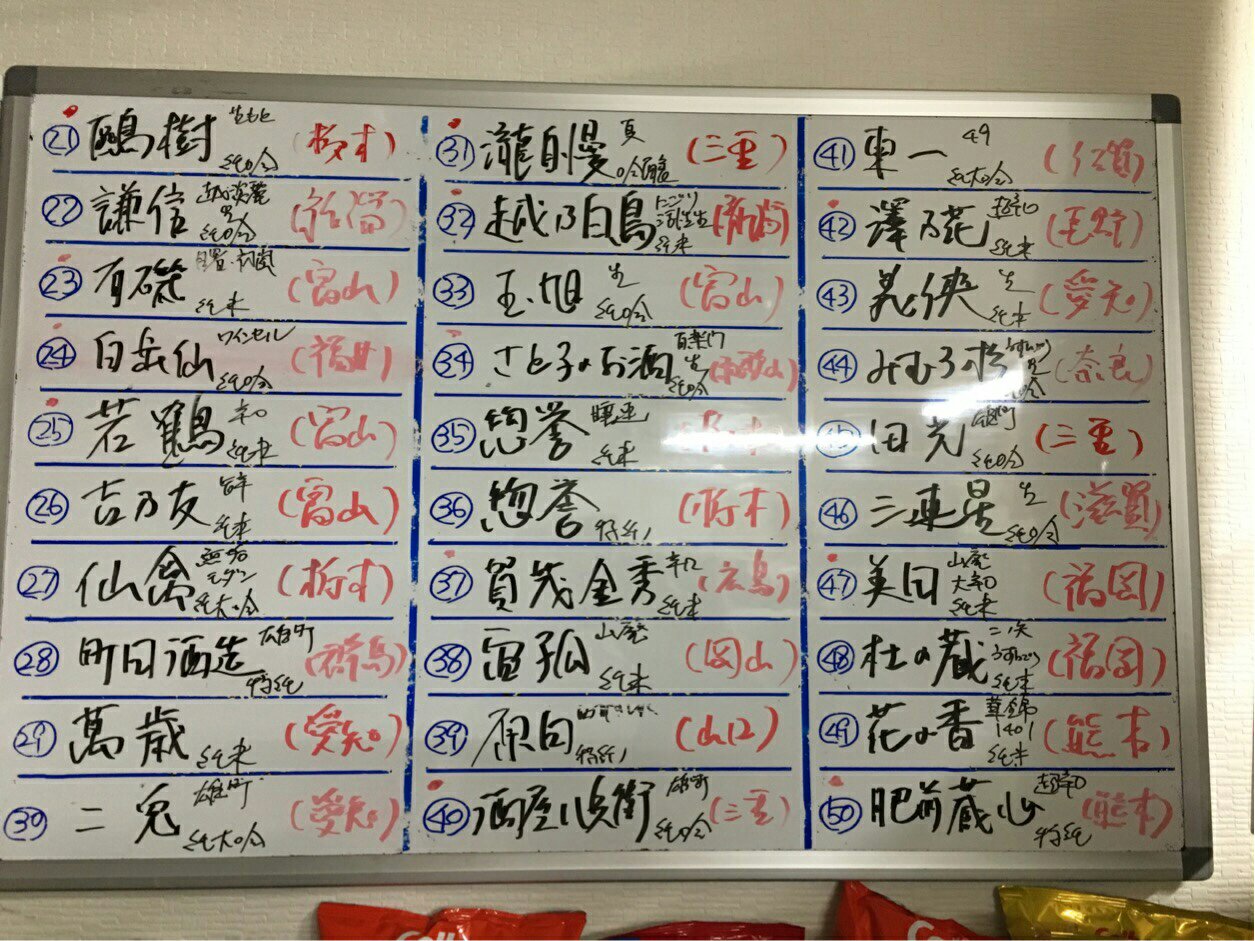 ㉑ 鷗樹 生もと 純吟 (栃木)
㉒ 謙信 越淡麗 純吟 (新潟)
㉓ 有磯 純米 (富山)
㉔ 白岳仙 ワインセル 純吟 (福井)
㉕ 若鶴 辛口 純米 (富山)
㉖ 吉乃友 純米 (富山)
㉗ 仙禽 無垢 モダン 純大吟 (栃木)
㉘ 町田酒造 雄町 特純 (群馬)
㉙ 萬歳 純米 (愛知)
㉚ 二兎 雄町 純大吟 (愛知)
㉛ 瀧自慢 吟醸 (三重)
㉜ 越乃白鳥 にごり 純米 (新潟)
㉝ 玉旭 生 純吟 (富山)
㉞ さと子のお酒 生 純吟 (和歌山)
㉟ 惣誉 純米
㊱ 惣誉 (栃木)
㊲ 賀茂金秀 辛口 純米 (広島)
㊳ 山廃 純米 (岡山)
㊴ 原田 (山口)
㊵ 酒屋八兵衛 雄町 純吟 (三重)
㊶ 東一 49 純大吟 (佐賀)
㊷ 澤乃花 超辛口 純米 (長野)
㊸ 生 純米 (愛知)
㊹ みむろ杉 (奈良)
㊺ 田光 雄町 純吟 (三重)
㊻ 三連星 生 純吟 (滋賀)
㊼ 美田 山廃 大辛口 純米 (福岡)
㊽ 杜の蔵 純米 (福岡)
㊾ 花の香 1401 純米 (熊本)
㊿ 肥前蔵心 超辛口 特純 (熊本)